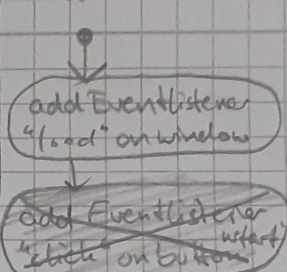 addEventlistener
"load" on window
add Eventlistener
"click" on button
"start"